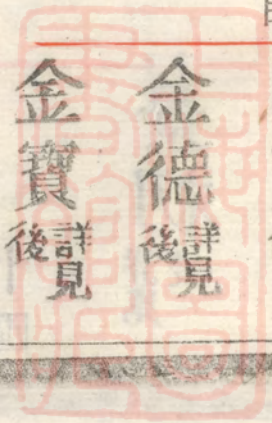 金德詳見後
金寶詳見後